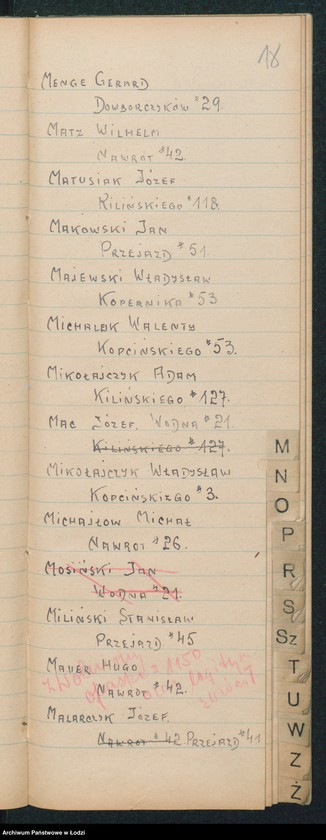 18
MENGE GERARD
DOWBORCZYKÓW #29.
MATZ WILHELM
NAWROT #42.
MATUSIAK JÓZEF
KILIŃSKIEGO #118.
MAKOWSKI JAN
PRZEJAZD #51.
MAJEWSKI WŁADYSŁAW
KOPERNIKA #53
MICHALAK WALENTY
KOPCIŃSKIEGO #53.
MIKOŁAJCZYK ADAM
KILIŃSKIEGO #127.
MAC JÓZEF. WODNA #21.
KILIŃSKIEGO #127.
MIKOŁAJCZYK WŁADYSŁAW
KOPCIŃSKIEGO #3.
MICHAJŁOW MICHAŁ
NAWROT #26.
MOSIŃSKI JAN
WODNA #21.
MILIŃSKI STANISŁAW
PRZEJAZD #45
MAUER HUGO
NAWROT #42.
MALARCZYK JÓZEF.
NAWROT #42 PRZEJAZD #41
M
N
O
P
R
S
Sz
T
U
W
Z
Ż
Archiwum Państwowe w Łodzi